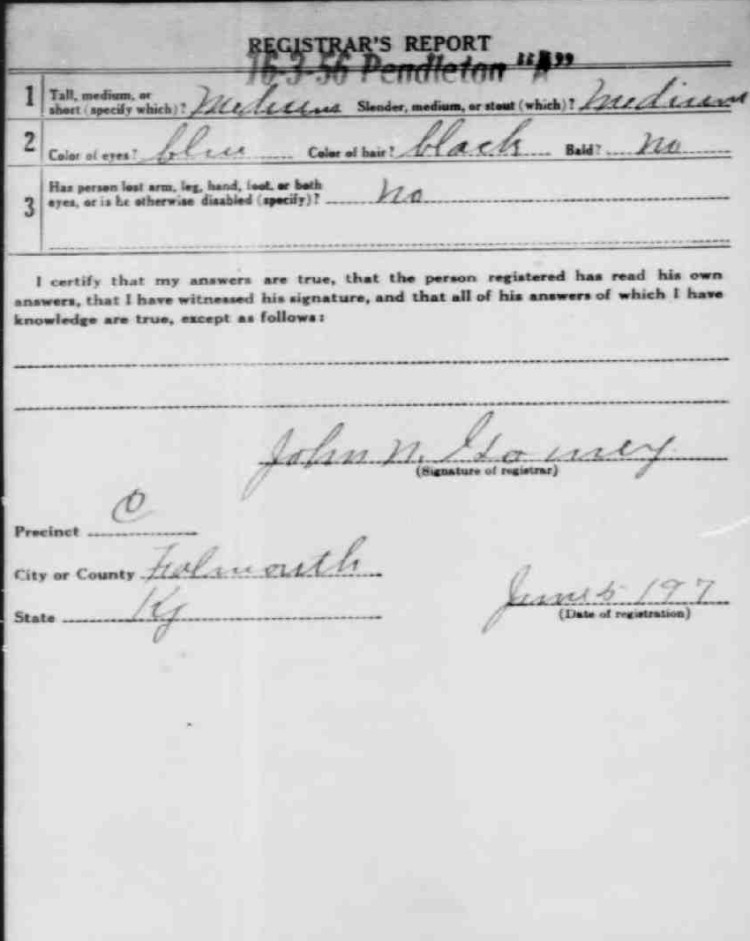 REGISTRAR'S REPORT
16-3-56 Pendleton "A"
1 Tall, medium, or short (specify which)? Medium Slender, medium, or stout (which)? Medium
2 Color of eyes? blue Color of hair? black Bald? no
3 Has person lost arm, leg, hand, foot, or both
eyes, or is he otherwise disabled (specify)? no
I certify that my answers are true, that the person registered has read his own
answers, that I have witnessed his signature, and that all of his answers of which I have
knowledge are true, except as follows:
John N.
(Signature of registrar)
Precinct C
City or County Falmouth
State Ky
June 5 197
(Date of registration)